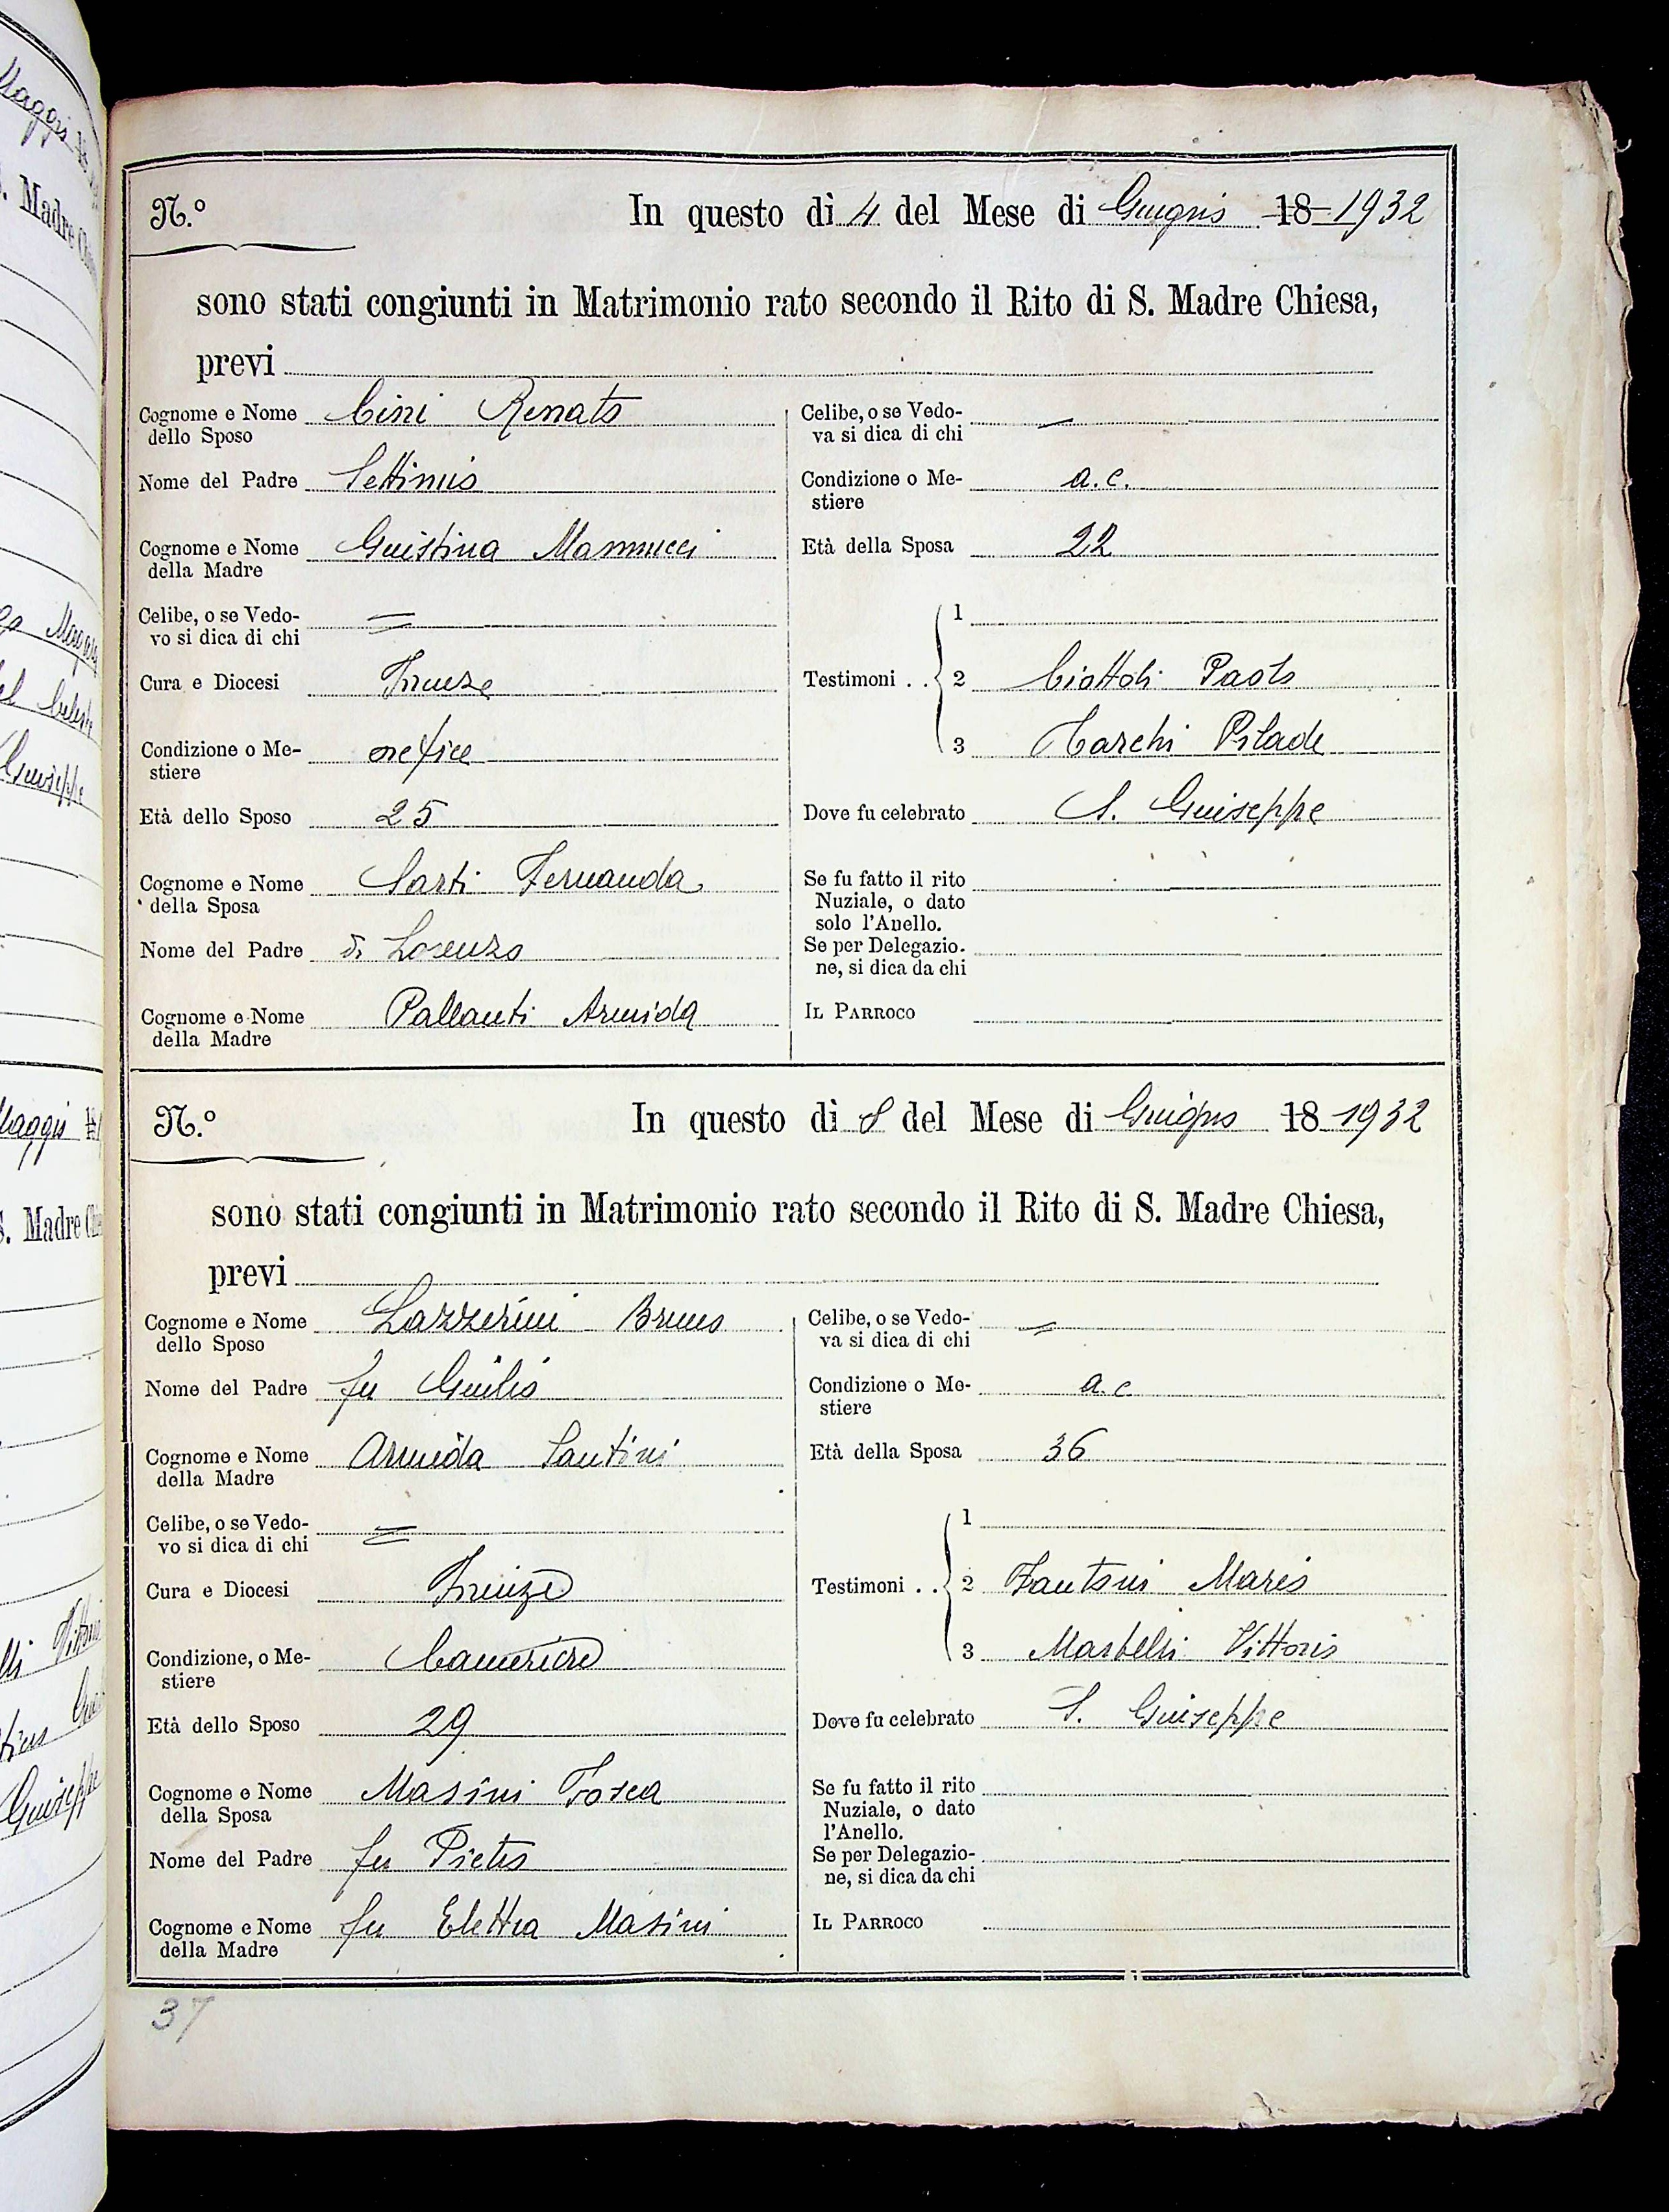 N.º In questo dì 4 del Mese di Giugno 18 1932
sono stati congiunti in Matrimonio rato secondo il Rito di S. Madre Chiesa,
previ
Cognome e Nome dello Sposo Cini Renato
Nome del Padre Settimio
Cognome e Nome della Madre Giustina Mannucci
Celibe, o se Vedo-
vo si dica di chi =
Cura e Diocesi Firenze
Condizione o Me-
stiere orefice
Età dello Sposo 25
Cognome e Nome della Sposa Sarti Fernanda
Nome del Padre di Lorenzo
Cognome e Nome della Madre Pallanti Armida
Celibe, o se Vedo-
va si dica di chi
Condizione o Me-
stiere a.c.
Età della Sposa 22
Testimoni . . 1
2 Ciottoli Paolo
3 Tarchi Pilade
Dove fu celebrato S. Giuseppe
Se fu fatto il rito
Nuziale, o dato
solo l'Anello.
Se per Delegazio-
ne, si dica da chi
IL PARROCO
N.º In questo dì 8 del Mese di Giugno 18 1932
sono stati congiunti in Matrimonio rato secondo il Rito di S. Madre Chiesa,
previ
Cognome e Nome dello Sposo Lazzerini Bruno
Nome del Padre fu Giulio
Cognome e Nome della Madre Armida Santini
Celibe, o se Vedo-
vo si dica di chi =
Cura e Diocesi Firenze
Condizione, o Me-
stiere Cameriere
Età dello Sposo 29
Cognome e Nome della Sposa Masini Tosca
Nome del Padre fu Pietro
Cognome e Nome della Madre fu Elettra Masini
Celibe, o se Vedo-
va si dica di chi =
Condizione o Me-
stiere a.c
Età della Sposa 36
Testimoni . . 1
2 Fantoni Mario
3 Vittorio
Dove fu celebrato S. Giuseppe
Se fu fatto il rito
Nuziale, o dato
l'Anello.
Se per Delegazio-
ne, si dica da chi
IL PARROCO
37